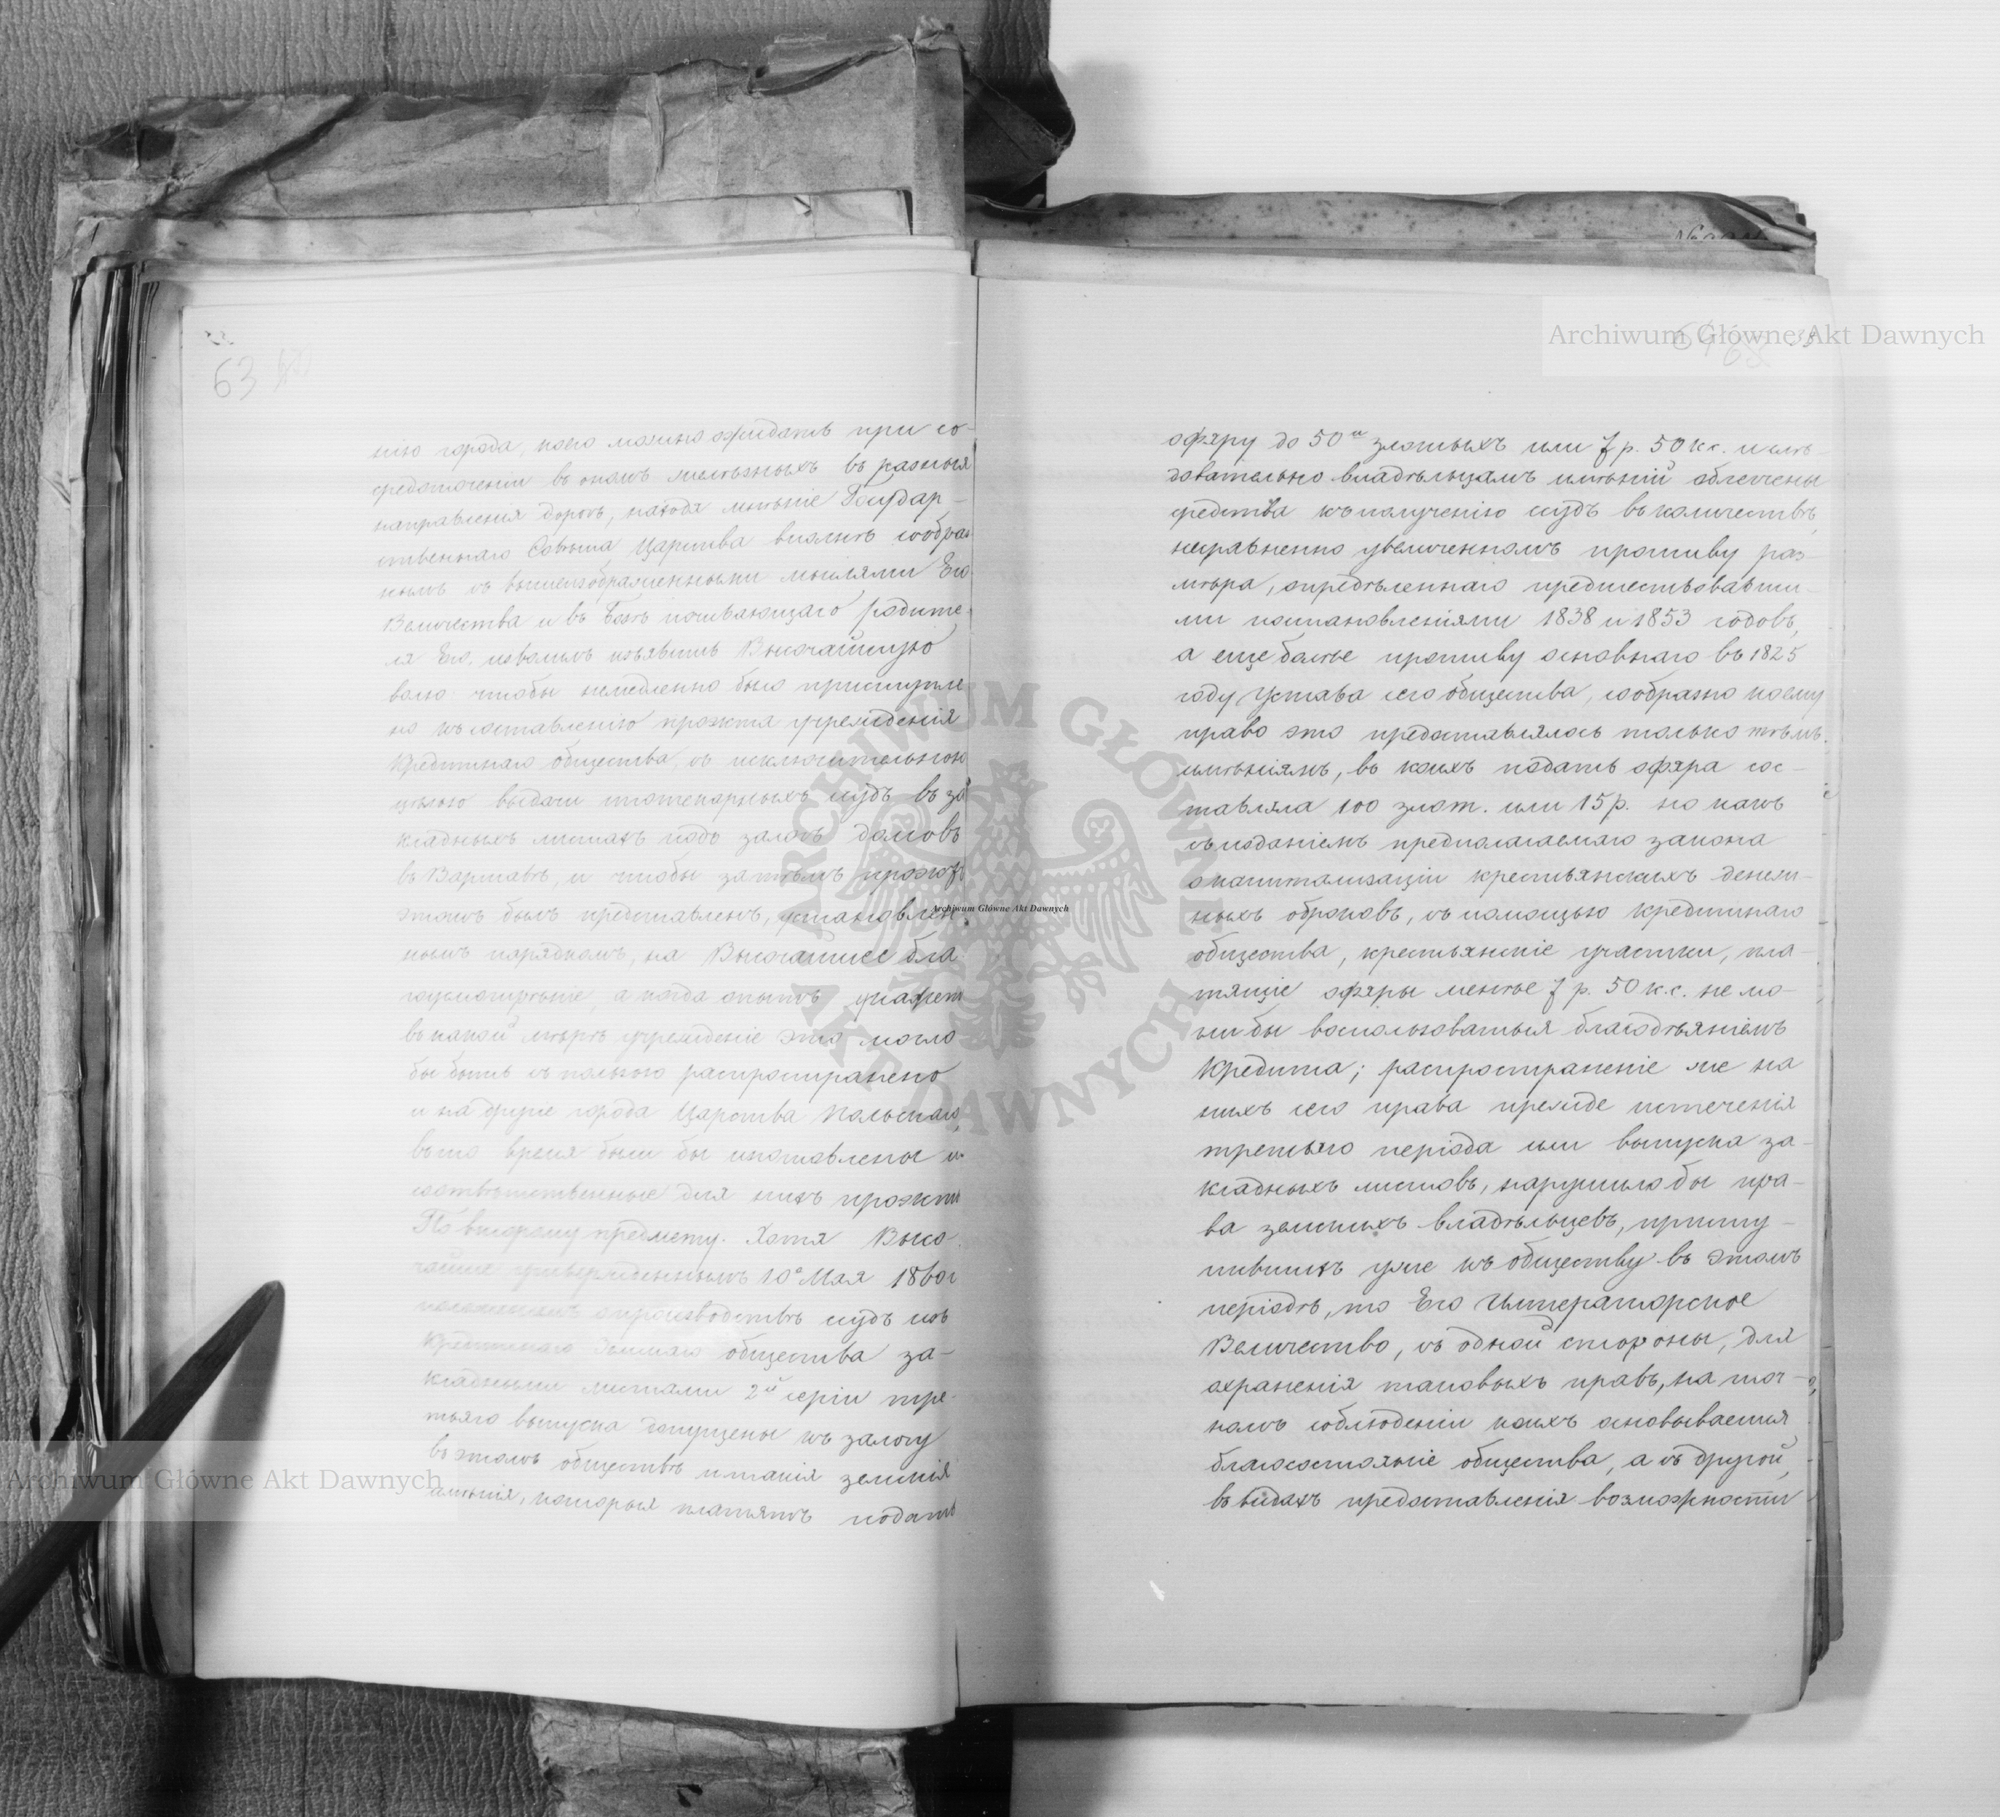 63
нію города, коего можно ожидать при со-
средоточеніи въ ономъ желѣзныхъ въ разныя
направленія дорогъ, находя мнѣніе Государ-
ственнаго Совѣта Царства вполнѣ сообраз
нымъ съ вышеизображенными мыслями Его
Величества и въ Бозѣ почивающаго родите-
ля Его, изволилъ изъявить Высочайшую
волю чтобы немедленно было приступле
но къ составленію проэкта учрежденія
Кредитнаго общества, съ исключительною
цѣлью выдачи ипотекарныхъ ссудъ въ за
кладныхъ листахъ подъ залогъ домовъ
въ Варшавѣ, и чтобы затѣмъ проэктъ
этотъ былъ представленъ, установлен
нымъ порядкомъ, на Высочайшее бла
гоусмотрѣніе, а когда опытъ укажетъ
въ какой мѣрѣ учрежденіе это могло
бы быть съ пользою распространено
и на другіе города Царства Польскаго,
въ то время были бы составлены и
соотвѣтственные для нихъ проэкты
По второму предмету. Хотя Высо
чайше утвержденнымъ 10го Мая 1860г
положеніемъ о производствѣ ссудъ изъ
Кредитнаго Земскаго общества за-
кладными листами 2й серіи тре-
тьяго выпуска допущены къ залогу
въ этомъ обществѣ и такія земскія
имѣнія, которыя платятъ подать
офяру до 50и злотыхъ или 7 р. 50 к.с. и слѣ-
довательно владѣльцамъ имѣній облегчены
средства къ полученію ссудъ въ количествѣ,
несравненно увеличенномъ противу раз-
мѣра, опредѣленнаго предшествовавши-
ми постановленіями 1838 и 1853 годовъ,
а еще болѣе противу основнаго въ 1825
году Устава сего общества, сообразно коему
право это предоставлялось только тѣмъ
имѣніямъ, въ коихъ подать офяра сос-
тавляла 100 злот. или 15 р. но какъ
съ изданіемъ предполагаемаго закона
о капитализаціи крестьянскихъ денеж-
ныхъ оброковъ, съ помощью Кредитнаго
общества, крестьянскіе участки, пла-
тящіе офяры менѣе 7 р. 50 к.с. не мо-
гли бы воспользоваться благодѣяніемъ
Кредита; распространеніе же на
нихъ сего права прежде истеченія
третьяго періода или выпуска за-
кладныхъ листовъ, нарушило бы пра-
ва земскихъ владѣльцевъ, присту-
пившихъ уже къ обществу въ этомъ
періодѣ, то Его Императорское
Величество, съ одной стороны, для
охраненія таковыхъ правъ, на точ-
номъ соблюденіи коихъ основывается
благосостояніе общества, а съ другой,
въ видахъ предоставленія возможности
Archiwum Główne Akt Dawnych
Archiwum Główne Akt Dawnych
Archiwum Główne Akt Dawnych
ARCHIWUM GŁÓWNE AKT DAWNYCH